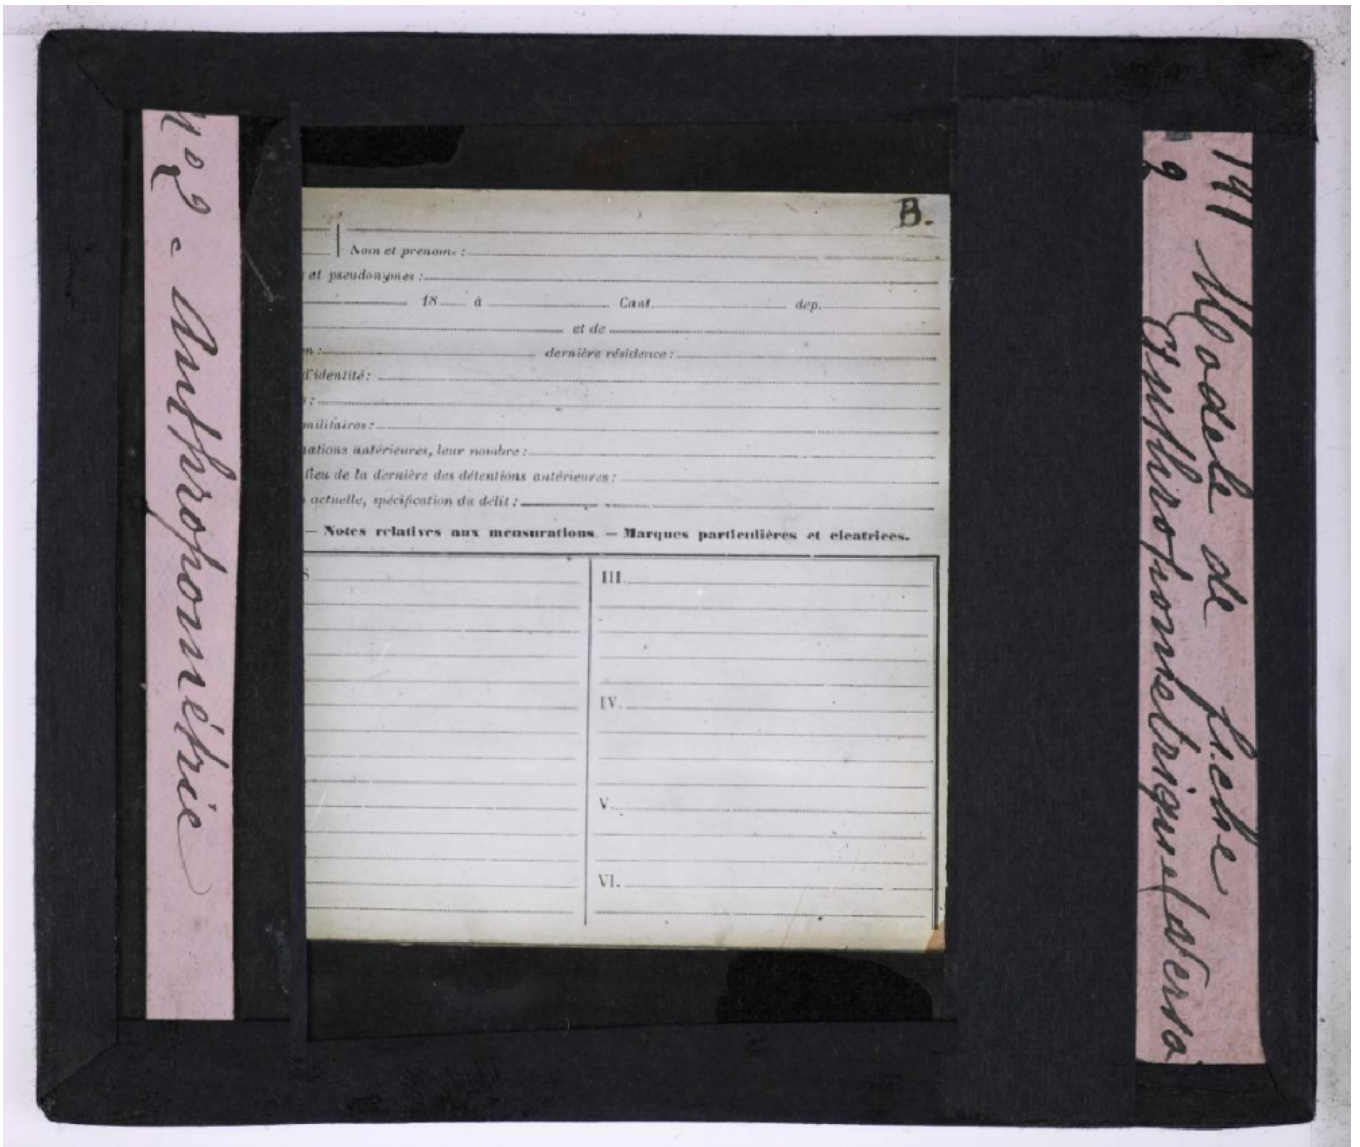 n° 2. Anthropométrie
B.
Nom et prenoms :
et pseudonymes :
18 à Cant. dep.
et de
n : dernière résidence :
d'identité :
s :
militaires :
nations antérieures, leur nombre :
lieu de la dernière des détentions antérieures :
actuelle, spécification du délit :
— Notes relatives aux mensurations. — Marques particulières et cicatrices.
S
III.
IV.
V.
VI.
141 Modele de fiche
9 Anthropometrique (Verso